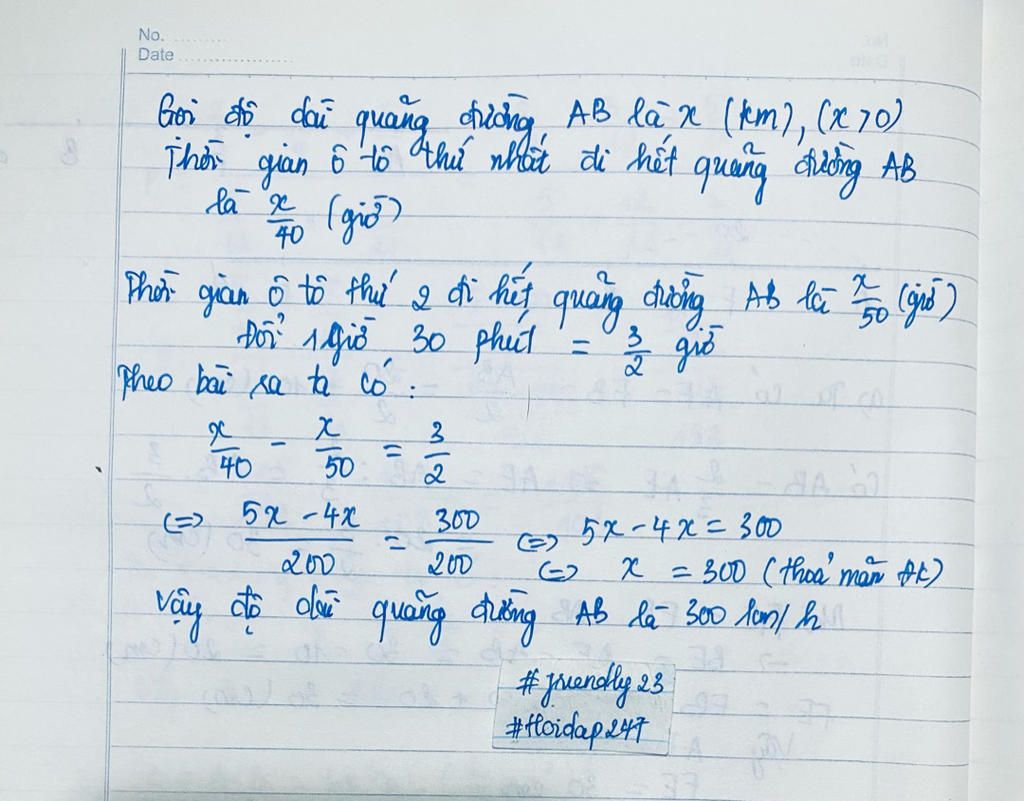 No. ..........
Date ....................
Gọi độ dài quãng đường AB là x (km), (x > 0)
Thời gian ô tô thứ nhất đi hết quãng đường AB
là x/40 (giờ)
Thời gian ô tô thứ 2 đi hết quãng đường AB là x/50 (giờ)
Đổi 1 giờ 30 phút = 3/2 giờ
Theo bài ra ta có :
x/40 - x/50 = 3/2
<=> (5x - 4x)/200 = 300/200 <=> 5x - 4x = 300
<=> x = 300 (thoả mãn đk)
Vậy độ dài quãng đường AB là 300 km/h
#friendly23
#Hoidap247